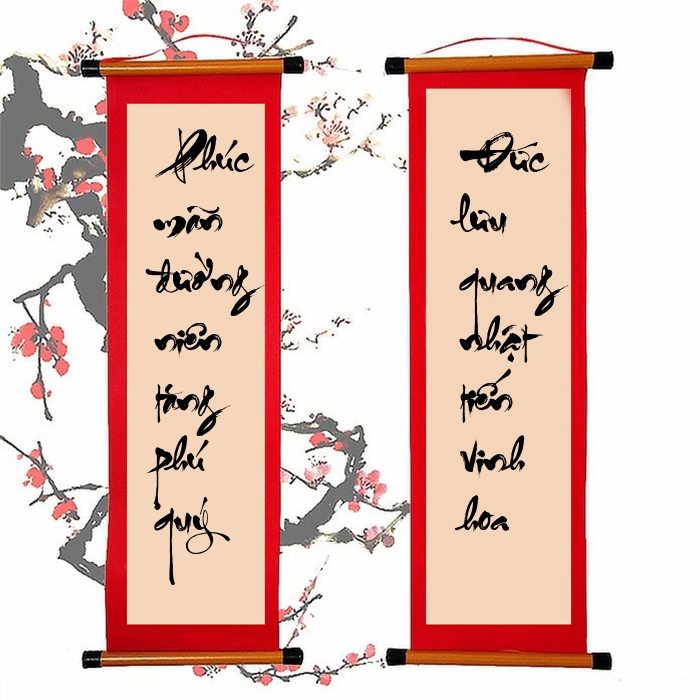 Phúc
mãn
đường
niên
tăng
phú
quý
Đức
lưu
quang
nhật
tiến
vinh
hoa